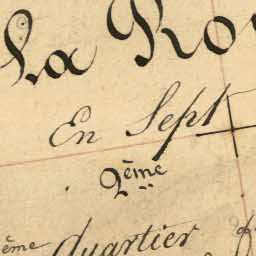 La Ro
En Sept
2ème
ème Quartier